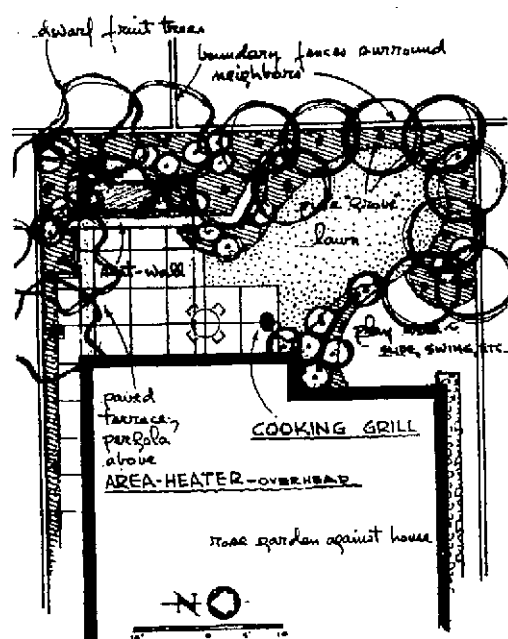 dwarf fruit trees
boundary fences surround
neighbors
grove
lawn
wall
play area
SWING, ETC.
paved
terrace,
pergola
above
COOKING GRILL
AREA-HEATER-OVERHEAD
rose garden against house
N
10' 0 5' 10